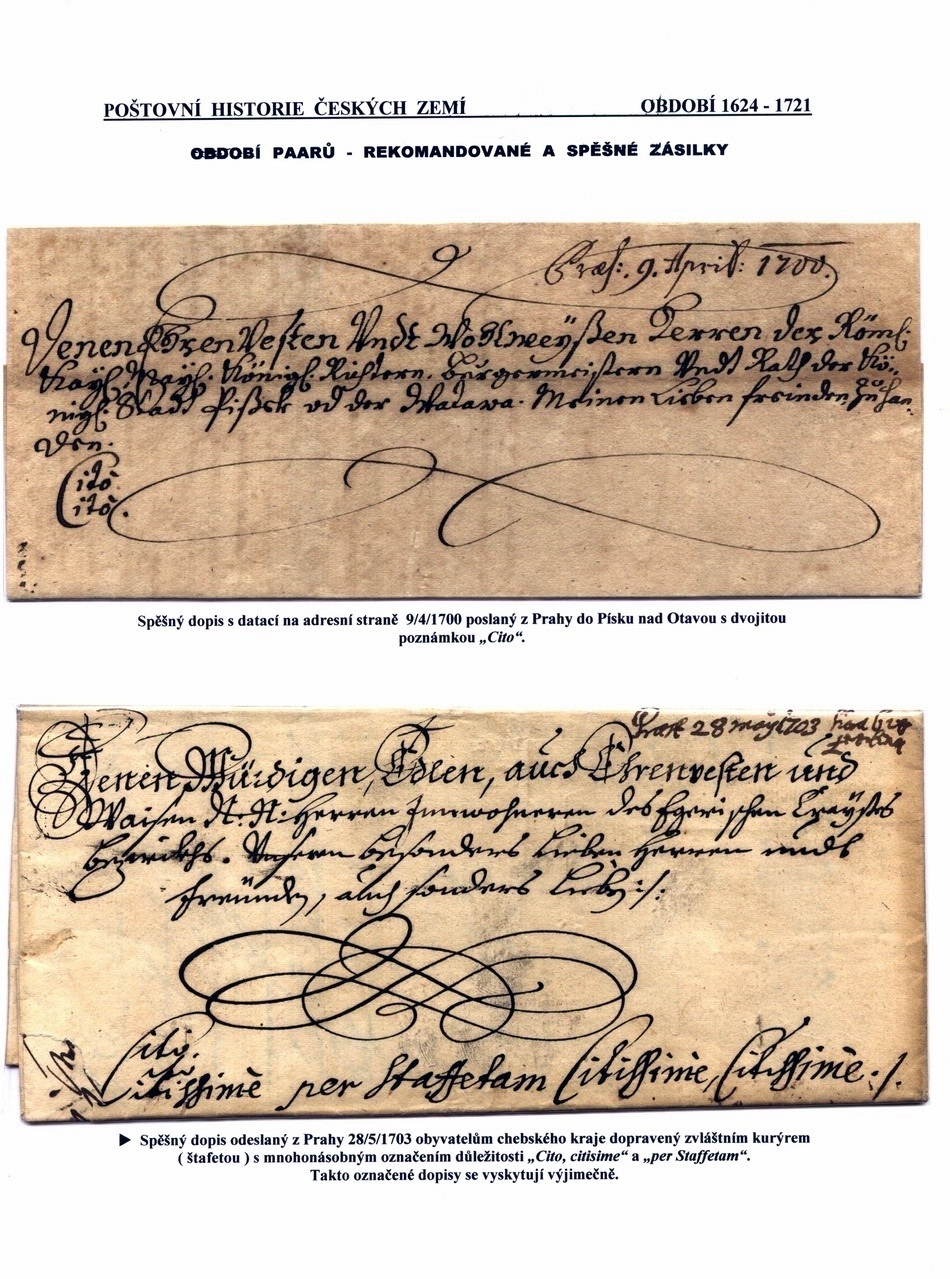 POŠTOVNÍ HISTORIE ČESKÝCH ZEMÍ OBDOBÍ 1624 - 1721
OBDOBÍ PAARŮ - REKOMANDOVANÉ A SPĚŠNÉ ZÁSILKY
Præs: 9. April: 1700.
Denen EhrenVesten Undt WohlWeyßen Herren der Röml:
Kayl: Mayl: Königl: Richtern. Bürgermeistern Undt Rath der Kö-
nigl: Stadt Pißek od der Watawa. Meinen Lieben freinden Zu han-
den.
Cito
Cito.
Spěšný dopis s datací na adresní straně 9/4/1700 poslaný z Prahy do Písku nad Otavou s dvojitou
poznámkou „Cito“.
28 may 1703
Denen Würdigen, Edlen, auch Ehrenvesten und
Waisen N: N: Herren Innwohneren des Egerischen Crayßes
Bezirckhs. Unsern besonders Lieben Herren undt
Freünden, auch sonders Lieb :/:
Cito.
Citissimè per Staffetam Citissimè, Citissimè ./.
► Spěšný dopis odeslaný z Prahy 28/5/1703 obyvatelům chebského kraje dopravený zvláštním kurýrem
( štafetou ) s mnohonásobným označením důležitosti „Cito, citisime“ a „per Staffetam“.
Takto označené dopisy se vyskytují výjimečně.